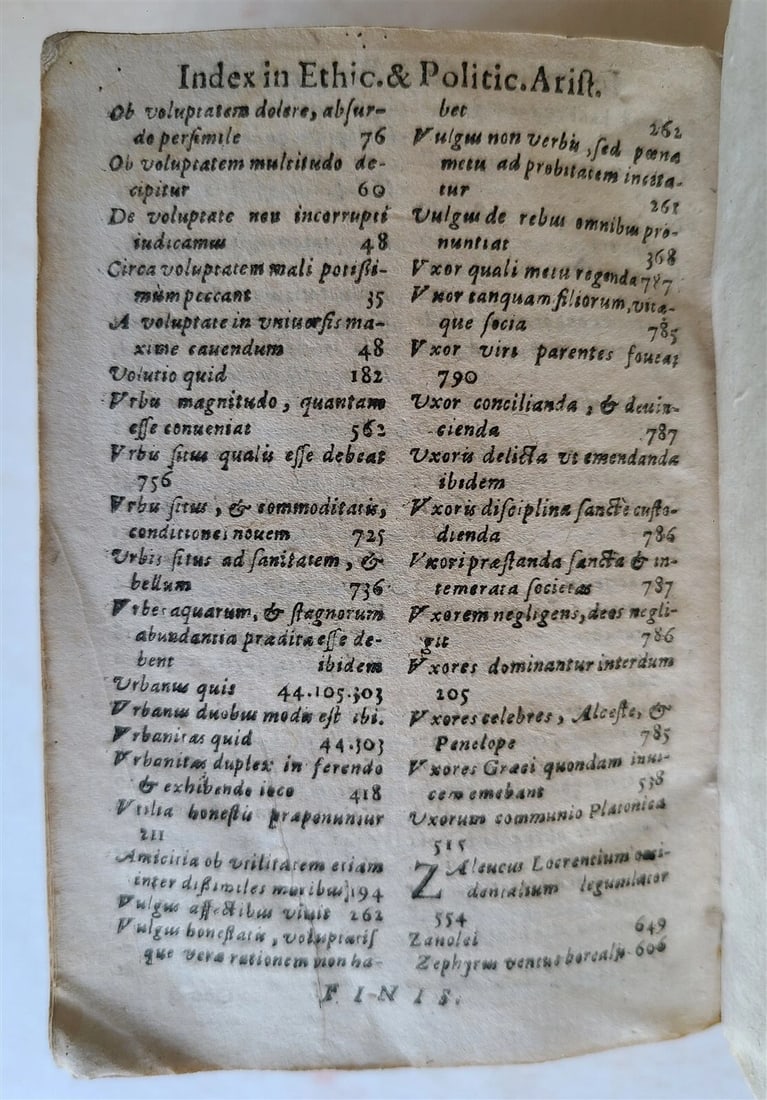 Index in Ethic. & Politic. Arist.
Ob voluptatem dolere, absur-
do persimile 76
Ob voluptatem multitudo de-
cipitur 60
De voluptate non incorrupti
iudicamus 48
Circa voluptatem mali potißi-
mùm peccant 35
A voluptate in vniuersis ma-
xime cauendum 48
Volutio quid 182
Vrbis magnitudo, quantam
esse conueniat 562
Vrbis situs qualis esse debeat
756
Vrbis situs, & commoditatis,
conditiones nouem 725
Vrbis situs ad sanitatem, &
bellum 736
Vrbes aquarum, & stagnorum
abundantia præditæ esse de-
bent ibidem
Vrbanus quis 44.105.303
Vrbanus duobus modis est ibi.
Vrbanitas quid 44.303
Vrbanitas duplex in ferendo
& exhibendo ioco 418
Vtilia honestis præponuntur
211
Amicitia ob vtilitatem etiam
inter dißimiles moribus 194
Vulgus affectibus viuit 262
Vulgus honestatis, voluptatis
que veræ rationem non ha-
bet 262
Vulgus non verbis, sed pœnæ
metu ad probitatem incita-
tur 261
Vulgus de rebus omnibus pro-
nuntiat 368
Vxor quali metu regenda 787
Vxor tanquam filiorum, vitæ-
que socia 785
Vxor viri parentes foueat
790
Vxor concilianda, & deuin-
cienda 787
Vxoris delicta vt emendanda
ibidem
Vxoris disciplina sanctè custo-
dienda 786
Vxori præstanda sancta & in-
temerata societas 787
Vxorem negligens, deos negli-
git 786
Vxores dominantur interdum
205
Vxores celebres, Alceste, &
Penelope 785
Vxores Græci quondam inui-
cem emebant 538
Vxorum communio Platonica
515
ZAleucus Locrensium occi-
dentalium legumlator
554
Zanolei 649
Zephyrus ventus borealis 606
FINIS.